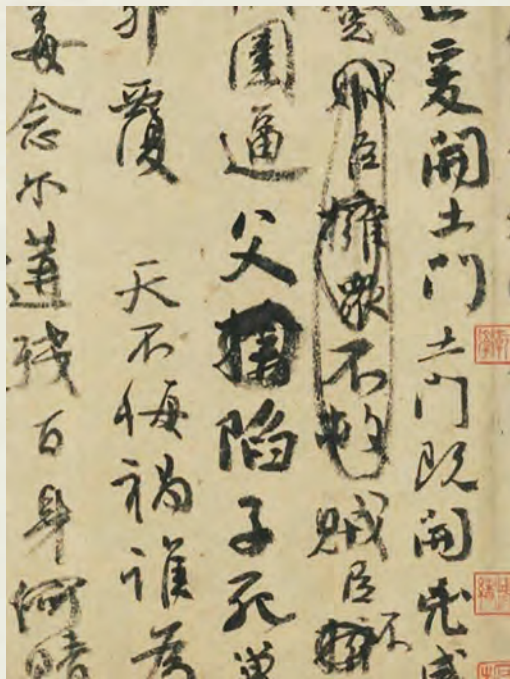 爰開土門土門既開兇威
蹙賊臣擁衆不救賊臣不擁
圍逼父擒陷子死巢
卵覆 天不悔禍誰為
毒念尔遘殘百身何贖